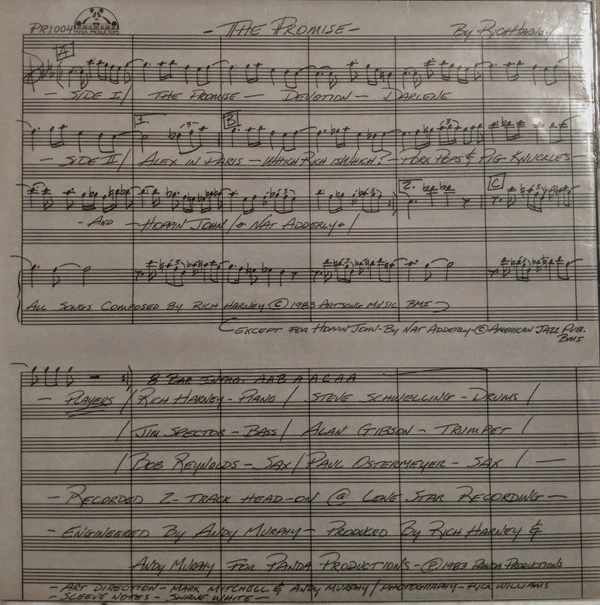 PR1004 PANDA PRODUCTIONS - THE PROMISE - BY RICH HARNEY
A
- SIDE I / THE PROMISE - DEVOTION - DARLENE
1. B
- SIDE II / ALEX IN PARIS - WHICH RICH IS WHICH? - PORK POPS & PIG KNUCKLES -
2. C
- AND - HOPPIN' JOHN / & NAT ADDERLY & /
ALL SONGS COMPOSED BY RICH HARNEY © 1983 ARTSONG MUSIC BMI
EXCEPT FOR HOPPIN' JOHN - BY NAT ADDERLY - © AMERICAN JAZZ PUB.
BMI
8 BAR INTRO. AAB A ACAA
- PLAYERS / RICH HARNEY - PIANO / STEVE SCHWELLING - DRUMS /
/ JIM SPECTOR - BASS / ALAN GIBSON - TRUMPET /
/ BOB REYNOLDS - SAX / PAUL OSTERMEYER - SAX / -
- RECORDED 2-TRACK HEAD-ON @ LONE STAR RECORDING -
- ENGINEERED BY ANDY MURPHY - PRODUCED BY RICH HARNEY &
ANDY MURPHY FOR PANDA PRODUCTIONS - ℗ 1983 PANDA PRODUCTIONS
- ART DIRECTION - MARK MITCHELL & ANDY MURPHY / PHOTOGRAPHY - RICK WILLIAMS
- SLEEVE NOTES - SHANE WHITE -